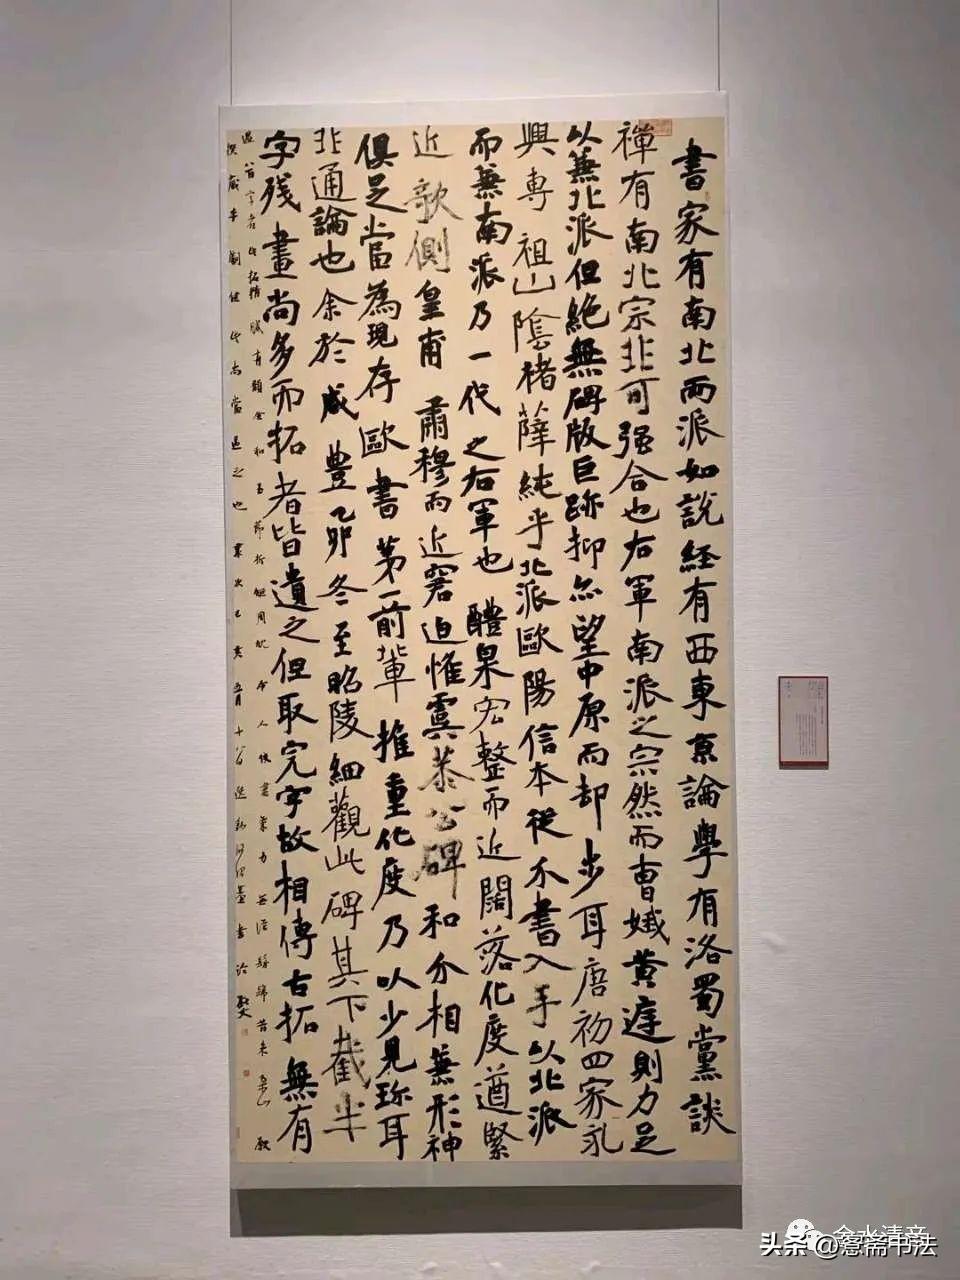 書家有南北兩派如說經有西東京論學有洛蜀黨談
禪有南北宗非可强合也右軍南派之宗然而曹娥黄庭則力足
以兼北派但絶無碑版巨跡抑亦望中原而却步耳唐初四家永
興專祖山陰楮薛純乎北派歐陽信本從分書入手以北派
而兼南派乃一代之右軍也醴泉宏整而近闊落化度遒緊
近欹側皇甫肅穆而近窘迫惟虞恭公碑和介相兼形神
俱足當為現存歐書第一前輩推重化度乃以少見珍耳
非通論也余於咸豐乙卯冬至昭陵細觀此碑其下截半
字殘畫尚多而拓者皆遺之但取完字故相傳古拓無有
頭条@惷斋书法
金水清音